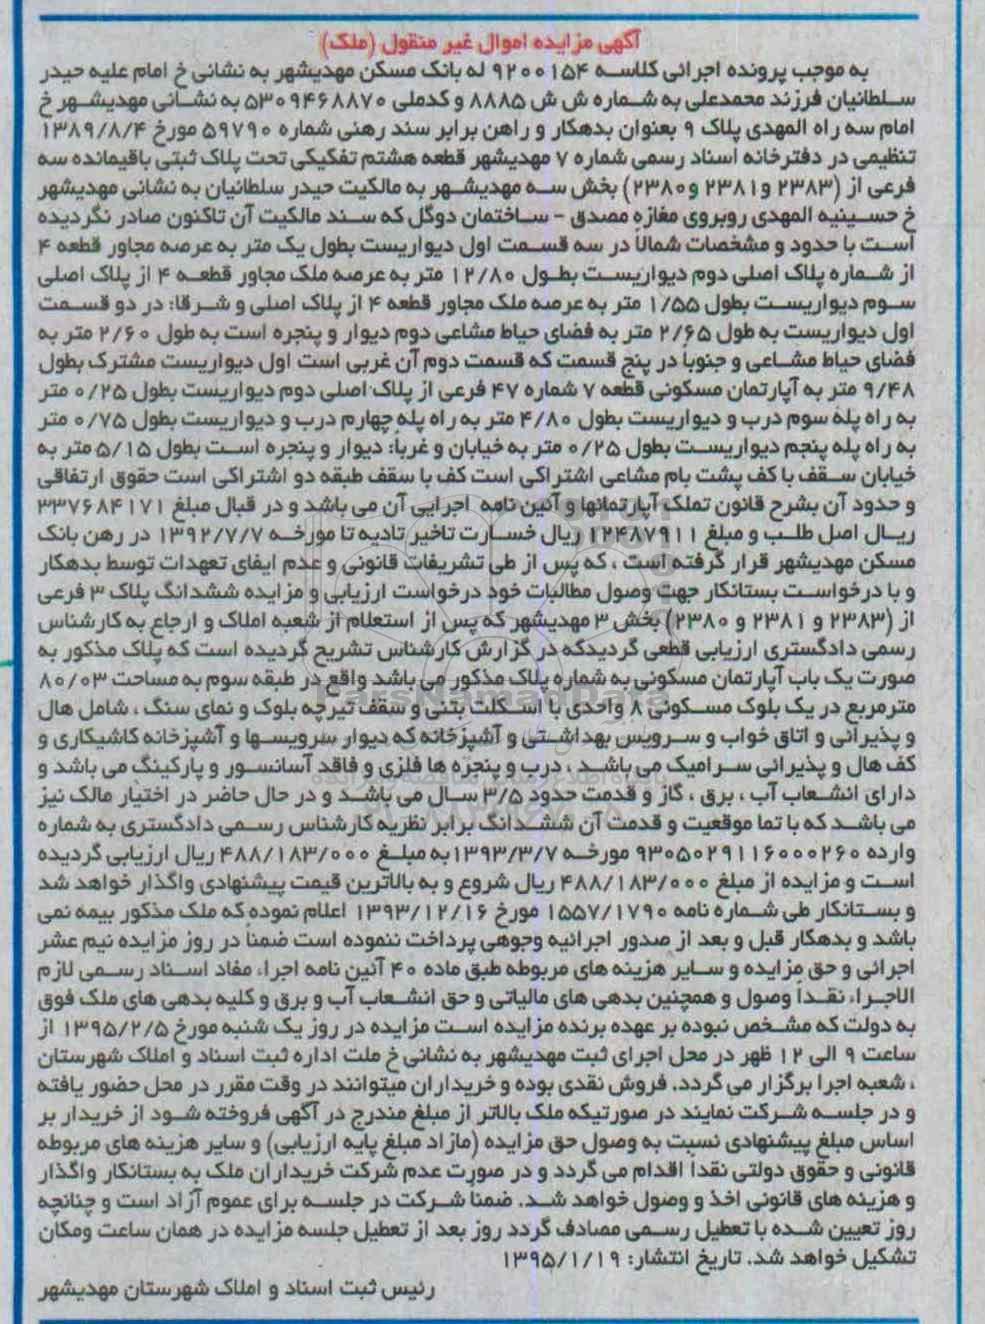 آگهی مزایده اموال غیر منقول (ملک)
به موجب پرونده اجرائی کلاسه ۹۲۰۰۱۵۴ له بانک مسکن مهدیشهر به نشانی خ امام علیه حیدر
سلطانیان فرزند محمدعلی به شماره ش ش ۸۸۸۵ و کدملی ۵۳۰۹۴۶۸۸۷۰ به نشانی مهدیشهر خ
امام سه راه المهدی پلاک ۹ بعنوان بدهکار و راهن برابر سند رهنی شماره ۵۹۷۹۰ مورخ ۱۳۸۹/۸/۴
تنظیمی در دفترخانه اسناد رسمی شماره ۷ مهدیشهر قطعه هشتم تفکیکی تحت پلاک ثبتی باقیمانده سه
فرعی از (۲۳۸۳ و۲۳۸۱ و۲۳۸۰) بخش سه مهدیشهر به مالکیت حیدر سلطانیان به نشانی مهدیشهر
خ حسینیه المهدی روبروی مغازه مصدق - ساختمان دوگل که سند مالکیت آن تاکنون صادر نگردیده
است با حدود و مشخصات شمالاً در سه قسمت اول دیواریست بطول یک متر به عرصه مجاور قطعه ۴
از شماره پلاک اصلی دوم دیواریست بطول ۱۲/۸۰ متر به عرصه ملک مجاور قطعه ۴ از پلاک اصلی
سوم دیواریست بطول ۱/۵۵ متر به عرصه ملک مجاور قطعه ۴ از پلاک اصلی و شرقا: در دو قسمت
اول دیواریست به طول ۲/۶۵ متر به فضای حیاط مشاعی دوم دیوار و پنجره است به طول ۲/۶۰ متر به
فضای حیاط مشاعی و جنوباً در پنج قسمت که قسمت دوم آن غربی است اول دیواریست مشترک بطول
۹/۴۸ متر به آپارتمان مسکونی قطعه ۷ شماره ۴۷ فرعی از پلاک اصلی دوم دیواریست بطول ۰/۲۵ متر
به راه پله سوم درب و دیواریست بطول ۴/۸۰ متر به راه پله چهارم درب و دیواریست بطول ۰/۷۵ متر
به راه پله پنجم دیواریست بطول ۰/۲۵ متر به خیابان و غربا: دیوار و پنجره است بطول ۵/۱۵ متر به
خیابان سقف با کف پشت بام مشاعی اشتراکی است کف با سقف طبقه دو اشتراکی است حقوق ارتفاقی
و حدود آن بشرح قانون تملک آپارتمانها و آئین نامه اجرایی آن می باشد و در قبال مبلغ ۳۳۷۶۸۴۱۷۱
ریال اصل طلب و مبلغ ۱۲۴۸۷۹۱۱ ریال خسارت تاخیر تادیه تا مورخه ۱۳۹۲/۷/۷ در رهن بانک
مسکن مهدیشهر قرار گرفته است ، که پس از طی تشریفات قانونی و عدم ایفای تعهدات توسط بدهکار
و با درخواست بستانکار جهت وصول مطالبات خود درخواست ارزیابی و مزایده ششدانگ پلاک ۳ فرعی
از (۲۳۸۳ و ۲۳۸۱ و ۲۳۸۰) بخش ۳ مهدیشهر که پس از استعلام از شعبه املاک و ارجاع به کارشناس
رسمی دادگستری ارزیابی قطعی گردیدکه در گزارش کارشناس تشریح گردیده است که پلاک مذکور به
صورت یک باب آپارتمان مسکونی به شماره پلاک مذکور می باشد واقع در طبقه سوم به مساحت ۸۰/۰۳
مترمربع در یک بلوک مسکونی ۸ واحدی با اسکلت بتنی و سقف تیرچه بلوک و نمای سنگ ، شامل هال
و پذیرائی و اتاق خواب و سرویس بهداشتی و آشپزخانه که دیوار سرویسها و آشپزخانه کاشیکاری و
کف هال و پذیرائی سرامیک می باشد ، درب و پنجره ها فلزی و فاقد آسانسور و پارکینگ می باشد و
دارای انشعاب آب ، برق ، گاز و قدمت حدود ۳/۵ سال می باشد و در حال حاضر در اختیار مالک نیز
می باشد که با تما موقعیت و قدمت آن ششدانگ برابر نظریه کارشناس رسمی دادگستری به شماره
وارده ۹۳۰۵۰۲۹۱۱۶۰۰۰۲۶۰ مورخه ۱۳۹۳/۳/۷ به مبلغ ۴۸۸/۱۸۳/۰۰۰ ریال ارزیابی گردیده
است و مزایده از مبلغ ۴۸۸/۱۸۳/۰۰۰ ریال شروع و به بالاترین قیمت پیشنهادی واگذار خواهد شد
و بستانکار طی شماره نامه ۱۵۵۷/۱۷۹۰ مورخ ۱۳۹۳/۱۲/۱۶ اعلام نموده که ملک مذکور بیمه نمی
باشد و بدهکار قبل و بعد از صدور اجرائیه وجوهی پرداخت ننموده است ضمناً در روز مزایده نیم عشر
اجرائی و حق مزایده و سایر هزینه های مربوطه طبق ماده ۴۰ آئین نامه اجراء مفاد اسناد رسمی لازم
الاجراء نقداً وصول و همچنین بدهی های مالیاتی و حق انشعاب آب و برق و کلیه بدهی های ملک فوق
به دولت که مشخص نبوده بر عهده برنده مزایده است مزایده در روز یک شنبه مورخ ۱۳۹۵/۲/۵ از
ساعت ۹ الی ۱۲ ظهر در محل اجرای ثبت مهدیشهر به نشانی خ ملت اداره ثبت اسناد و املاک شهرستان
، شعبه اجرا برگزار می گردد. فروش نقدی بوده و خریداران میتوانند در وقت مقرر در محل حضور یافته
و در جلسه شرکت نمایند در صورتیکه ملک بالاتر از مبلغ مندرج در آگهی فروخته شود از خریدار بر
اساس مبلغ پیشنهادی نسبت به وصول حق مزایده (مازاد مبلغ پایه ارزیابی) و سایر هزینه های مربوطه
قانونی و حقوق دولتی نقدا اقدام می گردد و در صورت عدم شرکت خریداران ملک به بستانکار واگذار
و هزینه های قانونی اخذ و وصول خواهد شد. ضمناً شرکت در جلسه برای عموم آزاد است و چنانچه
روز تعیین شده با تعطیل رسمی مصادف گردد روز بعد از تعطیل جلسه مزایده در همان ساعت ومکان
تشکیل خواهد شد. تاریخ انتشار: ۱۳۹۵/۱/۱۹
رئیس ثبت اسناد و املاک شهرستان مهدیشهر
ParsNamadData